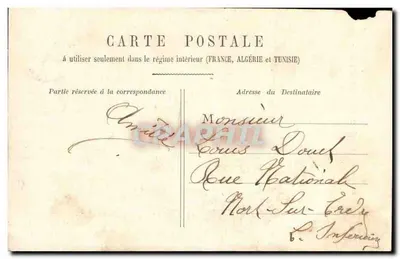 CARTE POSTALE
à utiliser seulement dans le régime intérieur (FRANCE, ALGÉRIE et TUNISIE)
Partie réservée à la correspondance
Adresse du Destinataire
Amitié
Monsieur
Louis Douet
Rue National
Nort-Sur-Erdre
L. Inférieure